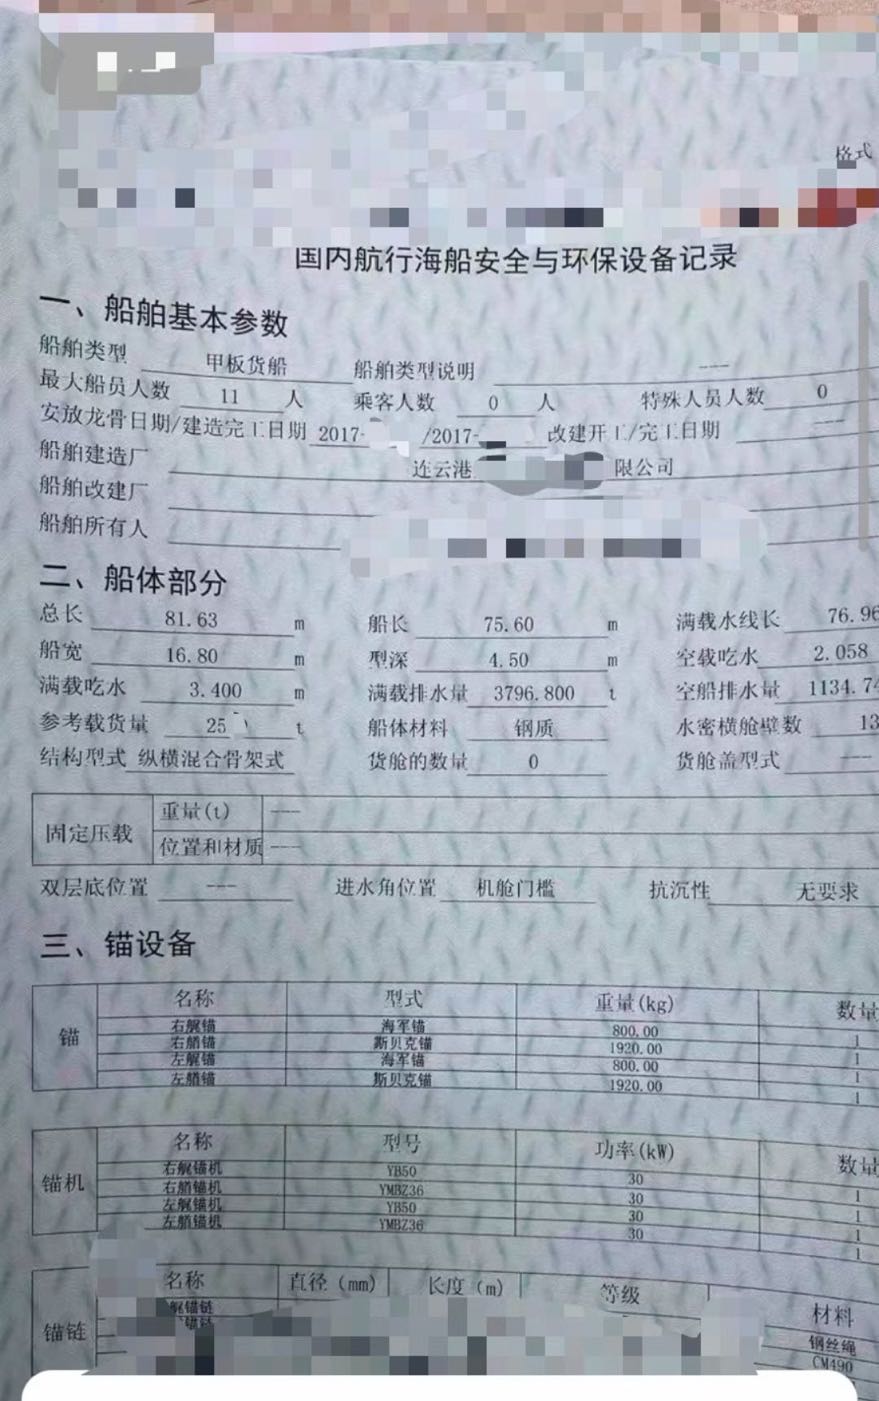 格式
国内航行海船安全与环保设备记录
一、船舶基本参数
船舶类型 甲板货船 船舶类型说明 ---
最大船员人数 11 人 乘客人数 0 人 特殊人员人数 0
安放龙骨日期/建造完工日期 2017- /2017- 改建开工/完工日期 ---
船舶建造厂 连云港 限公司
船舶改建厂
船舶所有人
二、船体部分
总长 81.63 m 船长 75.60 m 满载水线长 76.96
船宽 16.80 m 型深 4.50 m 空载吃水 2.058
满载吃水 3.400 m 满载排水量 3796.800 t 空船排水量 1134.74
参考载货量 25 t 船体材料 钢质 水密横舱壁数 13
结构型式 纵横混合骨架式 货舱的数量 0 货舱盖型式 ---
固定压载 重量(t) ---
位置和材质 ---
双层底位置 --- 进水角位置 机舱门槛 抗沉性 无要求
三、锚设备
锚 名称 型式 重量(kg) 数量
右艉锚 海军锚 800.00 1
右艏锚 斯贝克锚 1920.00 1
左艉锚 海军锚 800.00 1
左艏锚 斯贝克锚 1920.00 1
锚机 名称 型号 功率(kW) 数量
右艉锚机 YB50 30 1
右艏锚机 YMBZ36 30 1
左艉锚机 YB50 30 1
左艏锚机 YMBZ36 30 1
锚链 名称 直径(mm) 长度(m) 等级 材料
艉锚链 钢丝绳
锚链 CM490